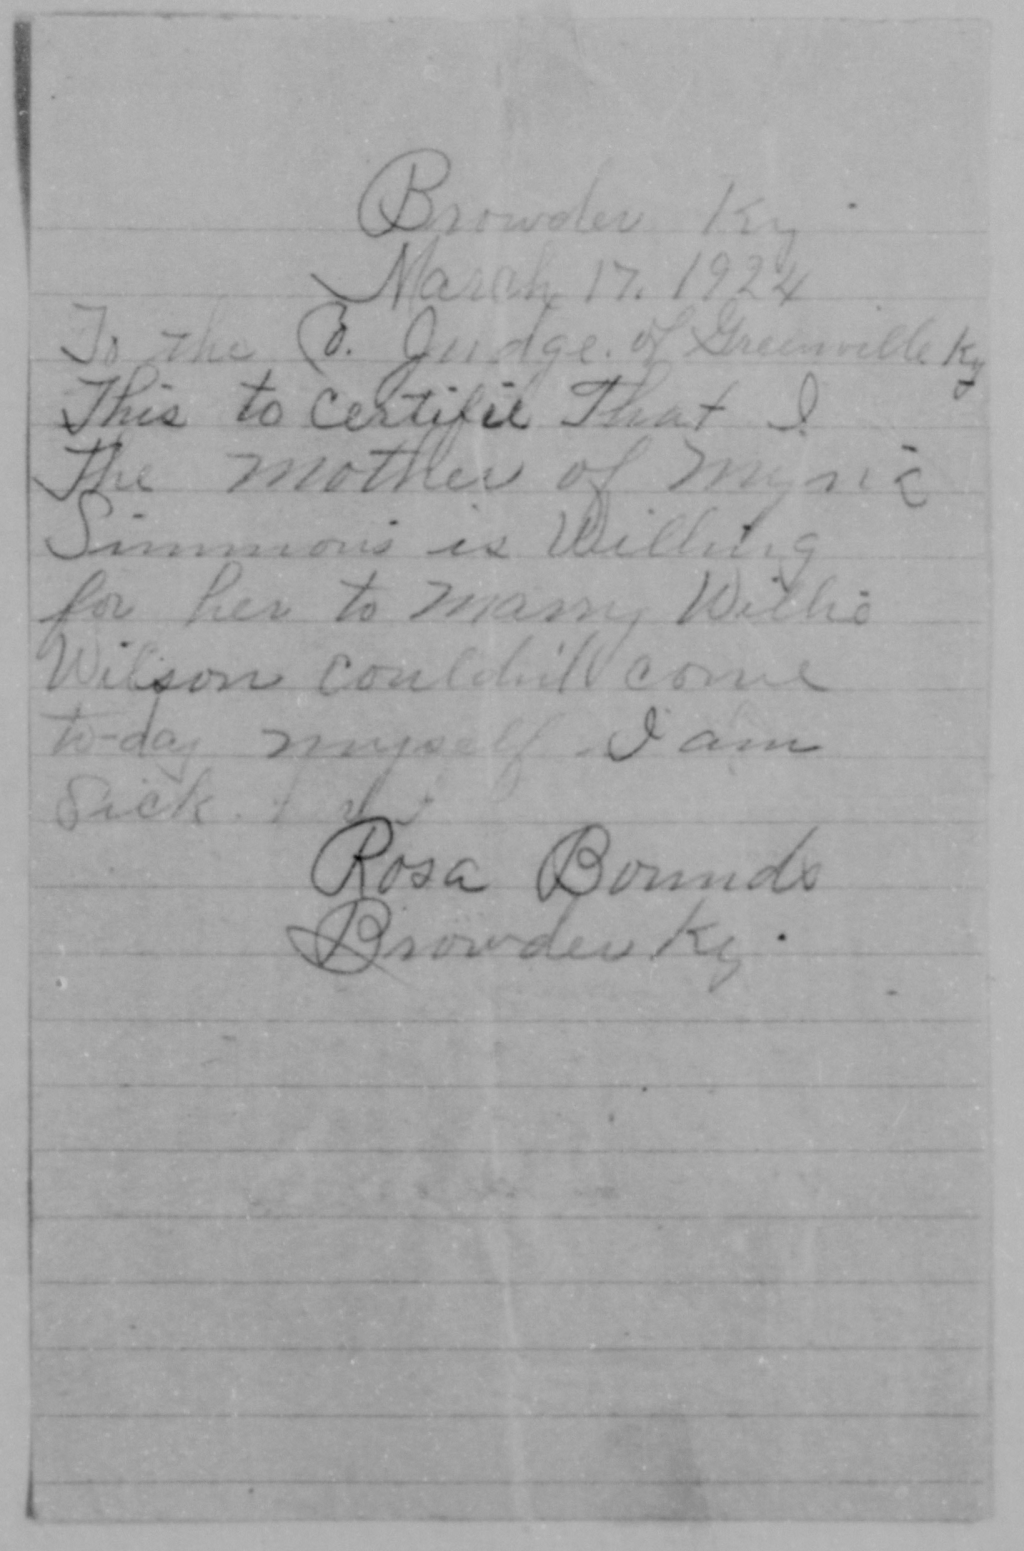 Browder Ky.
March 17. 1924
To the Co. Judge. of Greenville Ky
This to certifie That I
The mother of
Simmons is Willing
for her to marry Willie
Wilson couldn't come
to-day myself I am
Sick.
Rosa Bounds
Browder Ky.